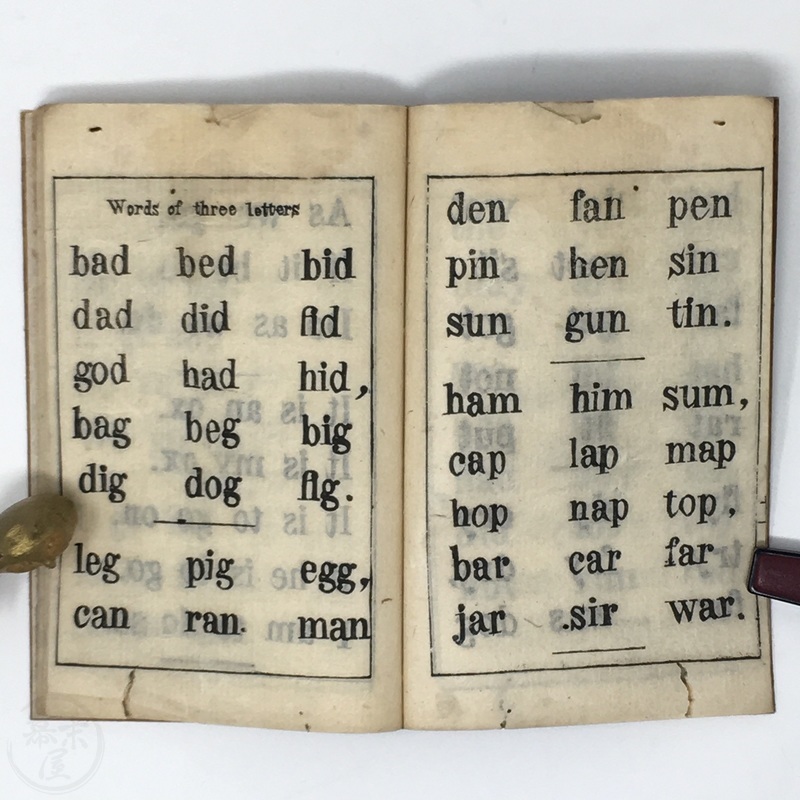 Words of three letters
bad bed bid
dad did fid
god had hid,
bag beg big
dig dog fig.
leg pig egg,
can ran. man
den fan pen
pin hen sin
sun gun tin.
ham him sum,
cap lap map
hop nap top,
bar car far
jar .sir war.